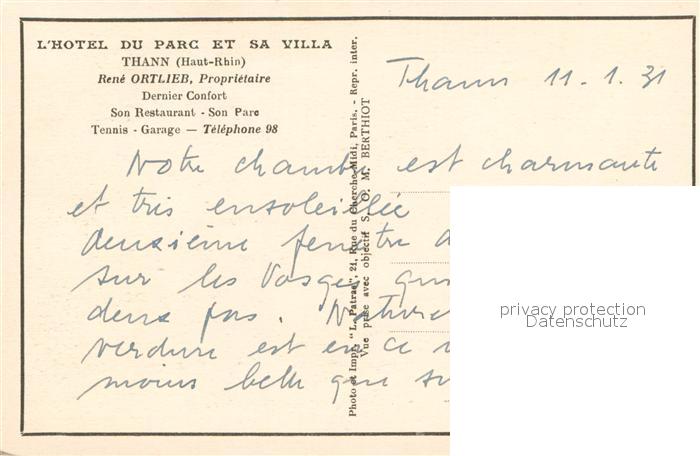 L'HOTEL DU PARC ET SA VILLA
THANN (Haut-Rhin)
René ORTLIEB, Propriétaire
Dernier Confort
Son Restaurant - Son Parc
Tennis - Garage — Téléphone 98
Photo et Impr. "La Patrae", 21, Rue du Cherche-Midi, Paris. - Repr. inter.
Vue prise avec objectif S. O. M. BERTHIOT
Thann 11.1.31
Notre chambre est charmante
et très ensoleillée
deuxième fenêtre
sur les Vosges
deux pas.
verdure est en ce
moins belle que
privacy protection
Datenschutz